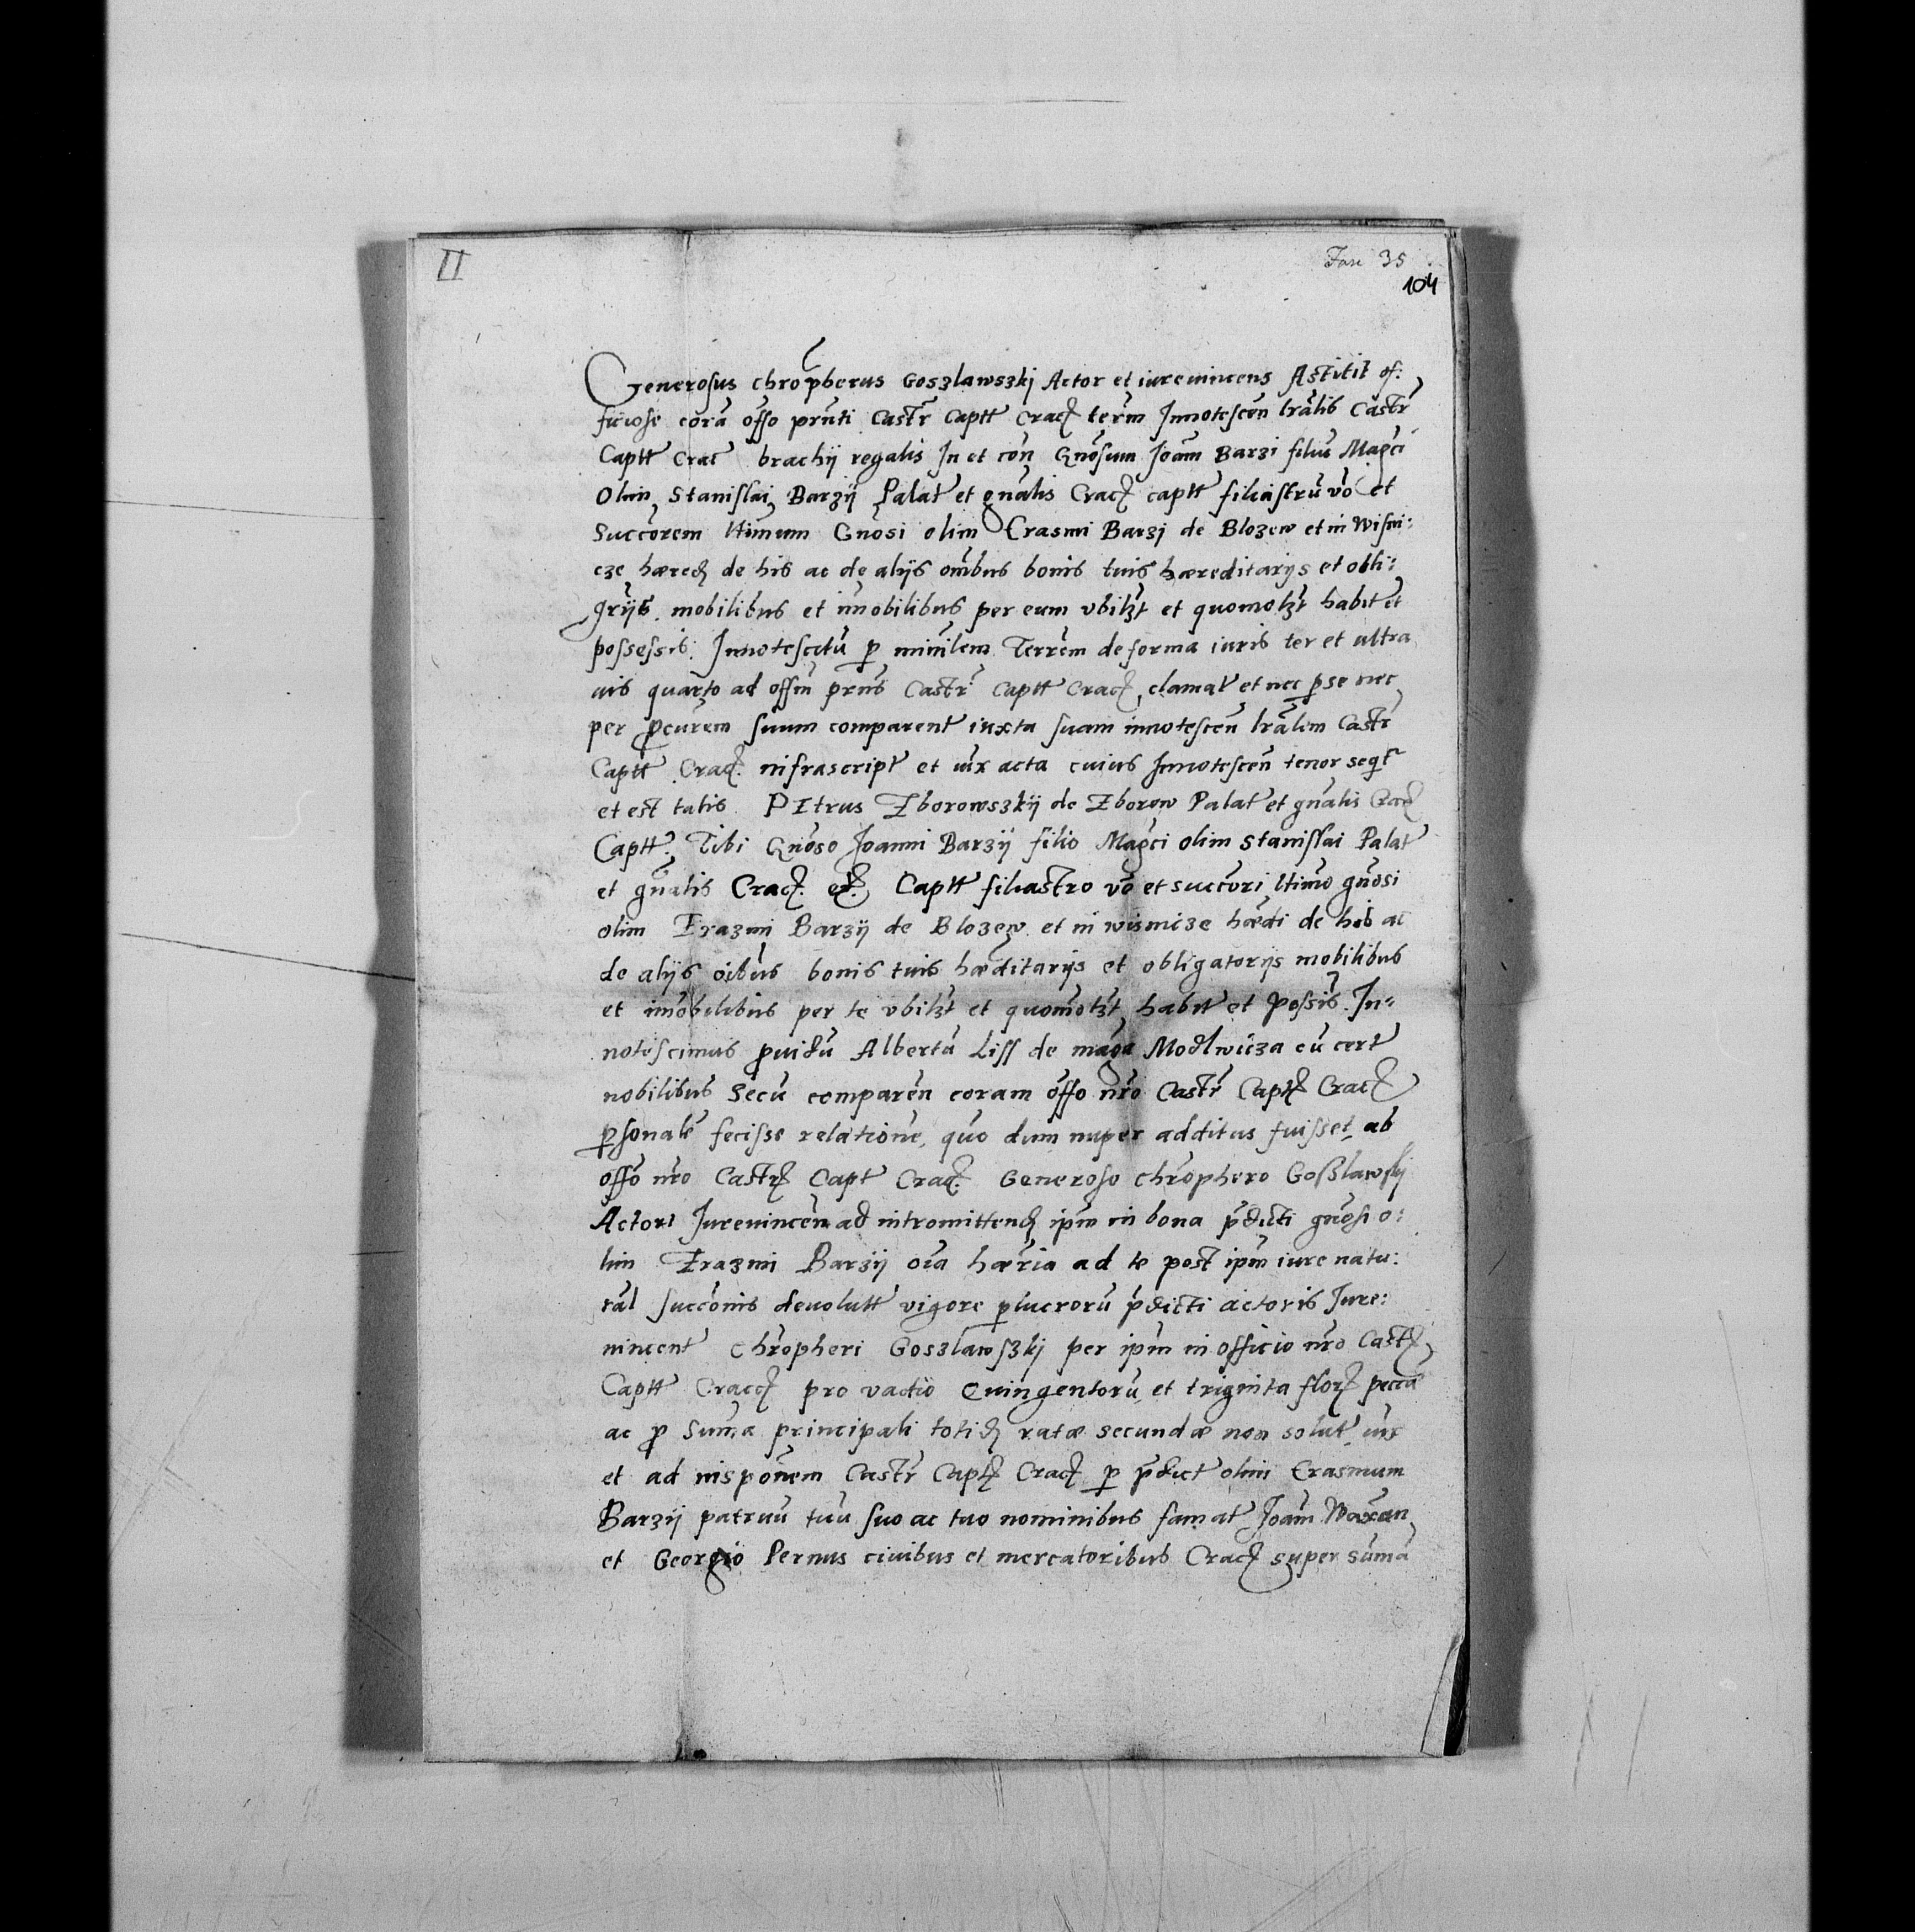 II
Fasc 35
104
Generosus chropherus Goszlawszkj Actor et iurevincens Astitit of:
ficiose corā offo prnti Castr Captt Crac term Innotescen lralis Castr
Captt Crac brachij regalis In et con Gnosum Joam Barzi filiū Magci
Olim Stanislai Barzij Palat et gnalis Crac captt filiastrū vo et
Succorem ltimum Gnosi olim Erasmi Barzj de Blozew et in Wisni:
cze hæred de his ac de alijs omibus bonis tuis hæreditarijs et obli:
grijs mobilibus et imobilibus per eum vbilzt et quomolzt habit et
possessis. Innotescitū p minilem Terrem de forma iuris ter et ultra
uis quarto ad offm prns Castr Captt Crac clamat et nec p se nec
per pcurem suum comparent iuxta suam innotescen lralem Castr
Captt Crac. infrascript et iux acta cuius Innotescen tenor seqt
et est talis PEtrus Zborowszkij de Zborow Palat et gnalis Crac
Captt. Tibi Gnoso Joanni Barzij filio Magci olim Stanislai Palat
et gnalis Crac. Captt filiastro vo et succori ltimo gnosi
olim Erazmi Barzij de Blozew et in wisnicze hædi de his ac
de alijs oibus bonis tuis hæditarijs et obligatorijs mobilibus
et imobilibus per te vbilzt et quomolzt habit et possis. In-
notescimus puidū Albertū Liss de magā Modlnicza cū cert
nobilibus Secū comparen coram offo nro Castr Capt Crac
psonale fecisse relatione, quo dum nuper additus fuisset ab
offo nro Castr Capt Crac. Generoso chrophero Goßlawskj
Actori Jurevincen ad intromittend ipm in bona pdicti gnosi o:
lim Erazmi Barzij oia hæria ad te post ipm iure natu:
ral succonis devolutt vigore plucrorū pdicti actoris Jure:
vincent chropheri Goszlawszkj per ipm in officio nro Castr
Captt Crac pro vadio Quingentorū et triginta flor pecca
ac p suma principali totid ratæ secundæ non solut iux
et ad insponem Castr Capt Crac p pdict olim Erasmum
Barzij patruū tuū suo ac tuo nominibus famat Joam Waxan
et Georgio Pernus civibus et mercatoribus Crac super suma